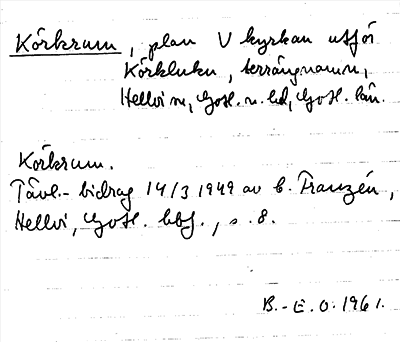 Körkrum, plan V kyrkan utför
Körkluku, terrängnamn,
Hellvi sn, Gotl. n. hd, Gotl. län.
Körkrum.
Tävl.- bidrag 14/3 1949 av C. Franzén,
Hellvi, Gotl. hbf., s. 8.
B.-E.O. 1961.